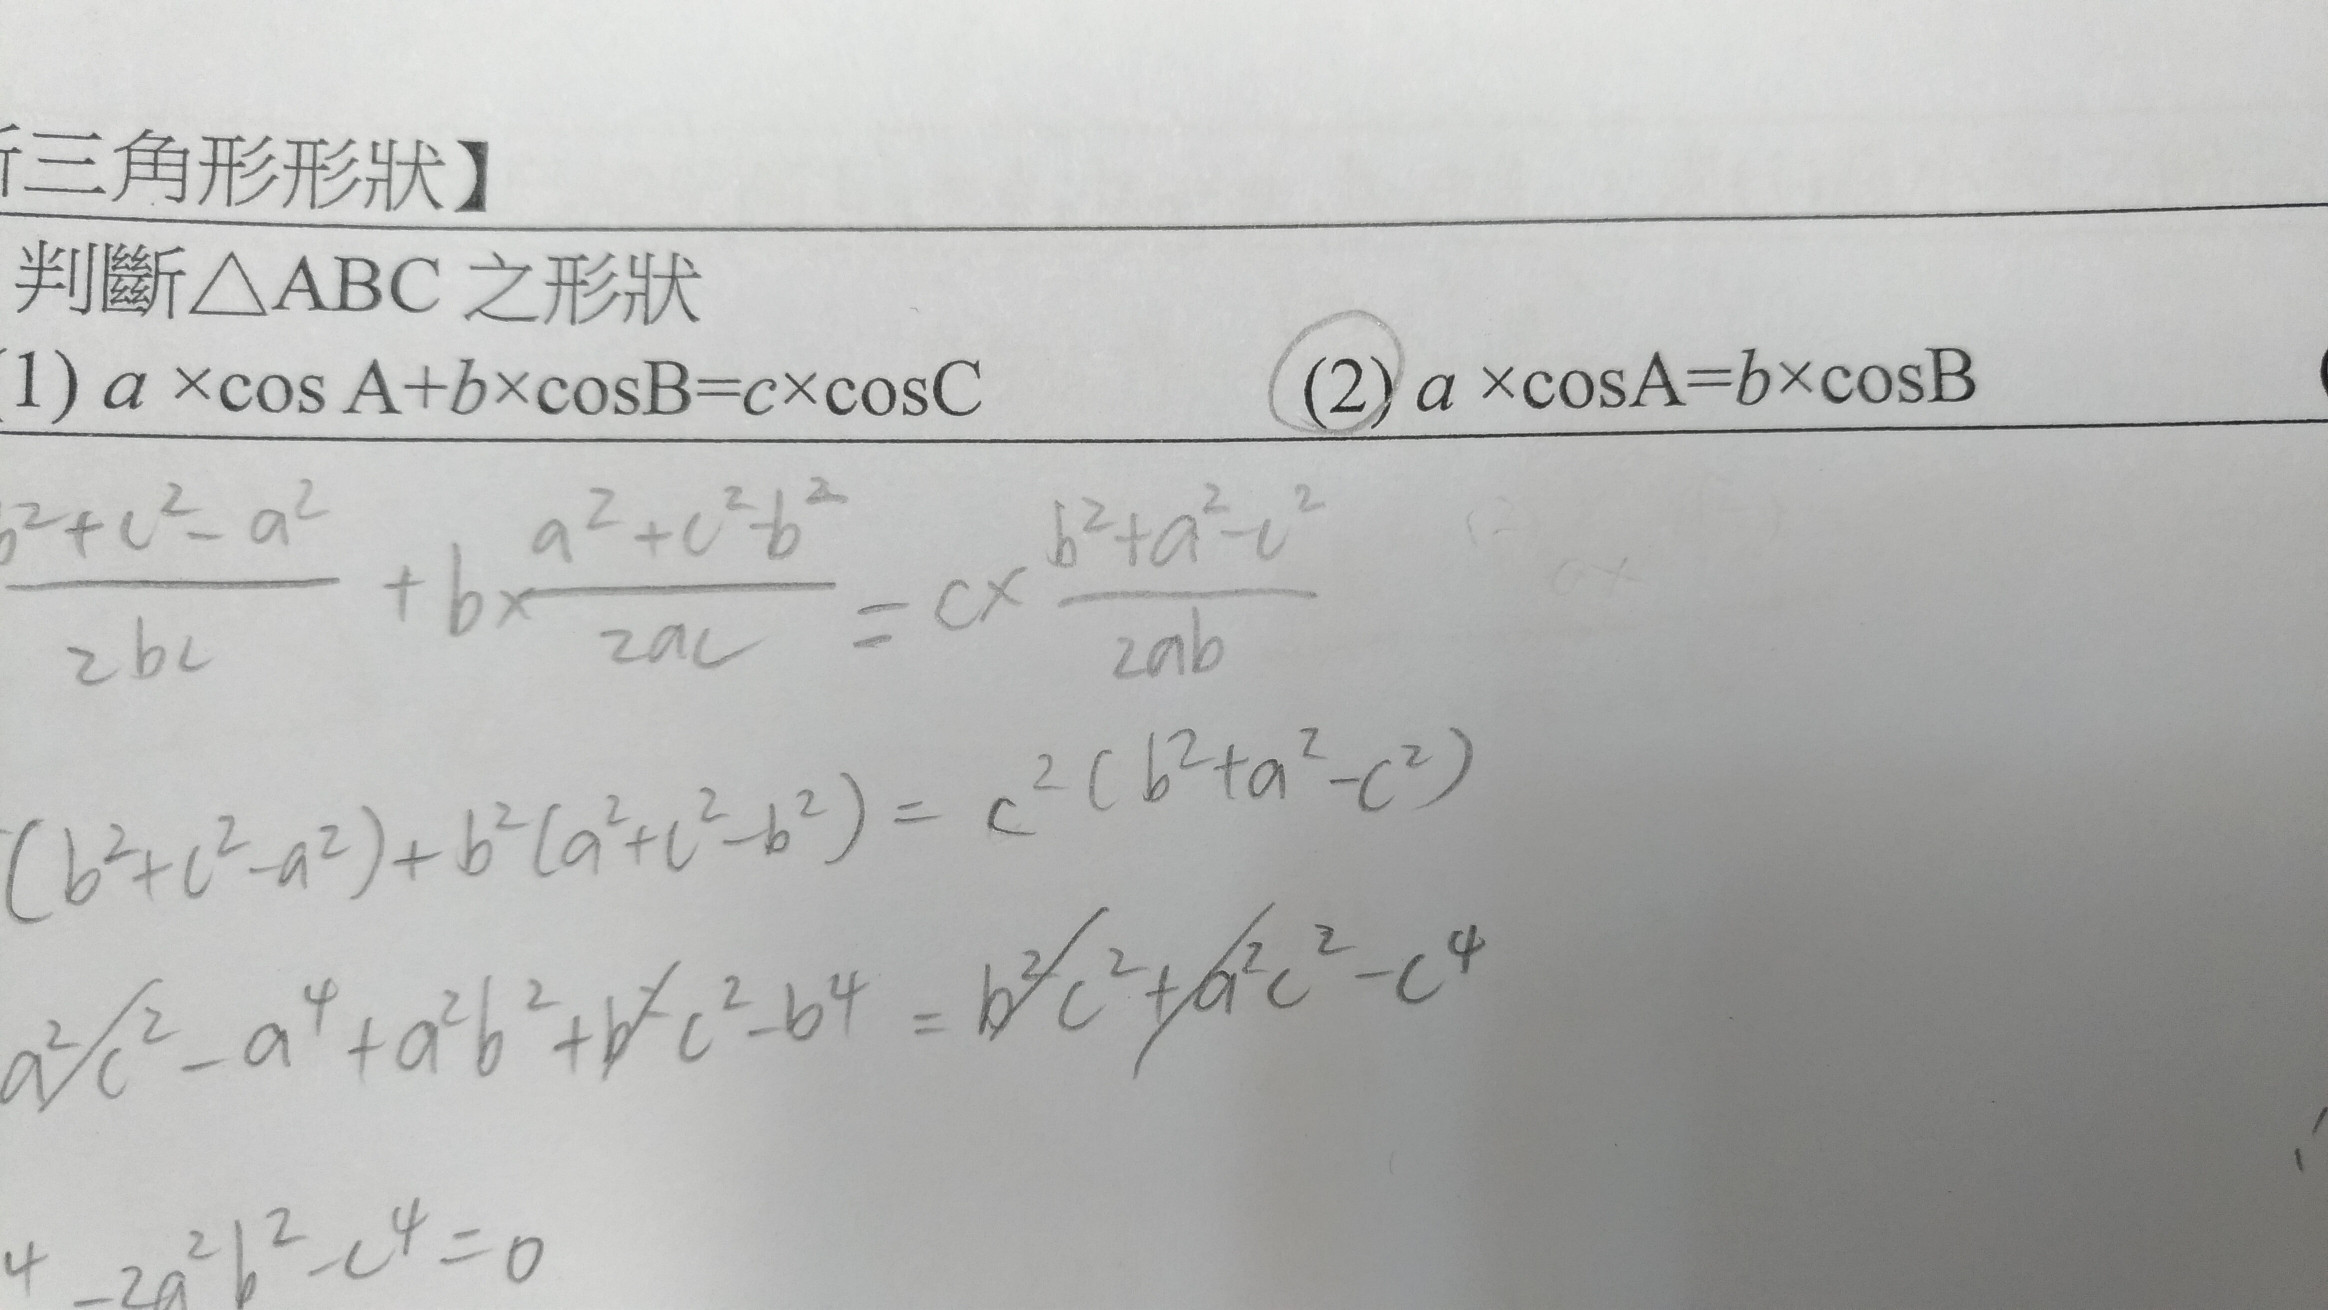 三角形形狀】
判斷△ABC 之形狀
(1) a ×cos A+b×cosB=c×cosC (2) a ×cosA=b×cosB
b²+c²-a² / 2bc + b× a²+c²-b² / 2ac = c× b²+a²-c² / 2ab
(b²+c²-a²)+b²(a²+c²-b²) = c²(b²+a²-c²)
a²c²-a⁴+a²b²+b²c²-b⁴ = b²c²+a²c²-c⁴
⁴-2a²b²-c⁴=0